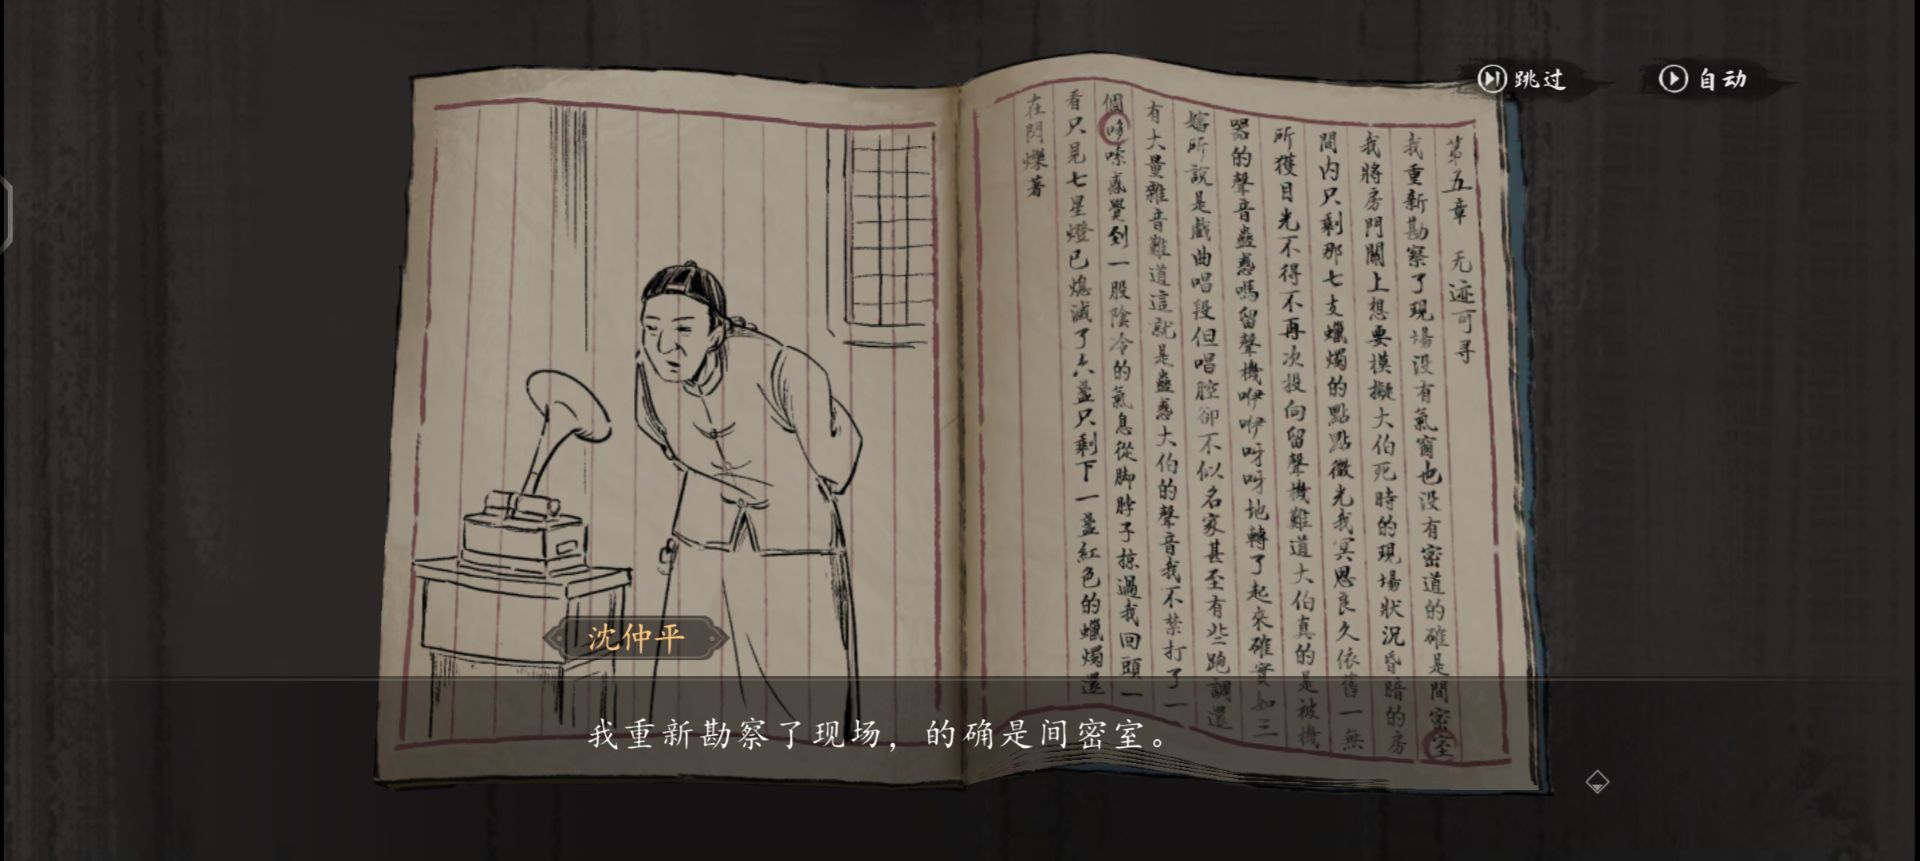 跳过
自动
第五章 无迹可寻
我重新勘察了現場沒有氣窗也沒有密道的確是間密室
我將房門關上想要模擬大伯死時的現場狀況昏暗的房
間內只剩那七支蠟燭的點點微光我冥思良久依舊一無
所獲目光不得不再次投向留聲機難道大伯真的是被機
器的聲音蠱惑嗎留聲機咿咿呀呀地轉了起來確實如三
嬸所說是戲曲唱段但唱腔卻不似名家甚至有些跑調還
有大量雜音難道這就是蠱惑大伯的聲音我不禁打了一
個哆嗦感覺到一股陰冷的氣息從脚脖子掠過我回頭一
看只見七星燈已熄滅了六盞只剩下一盞紅色的蠟燭還
在閃爍著
沈仲平
我重新勘察了现场，的确是间密室。